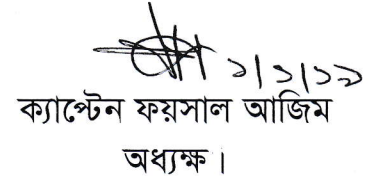 ২/১/১৯
ক্যাপ্টেন ফয়সাল আজিম
অধ্যক্ষ।